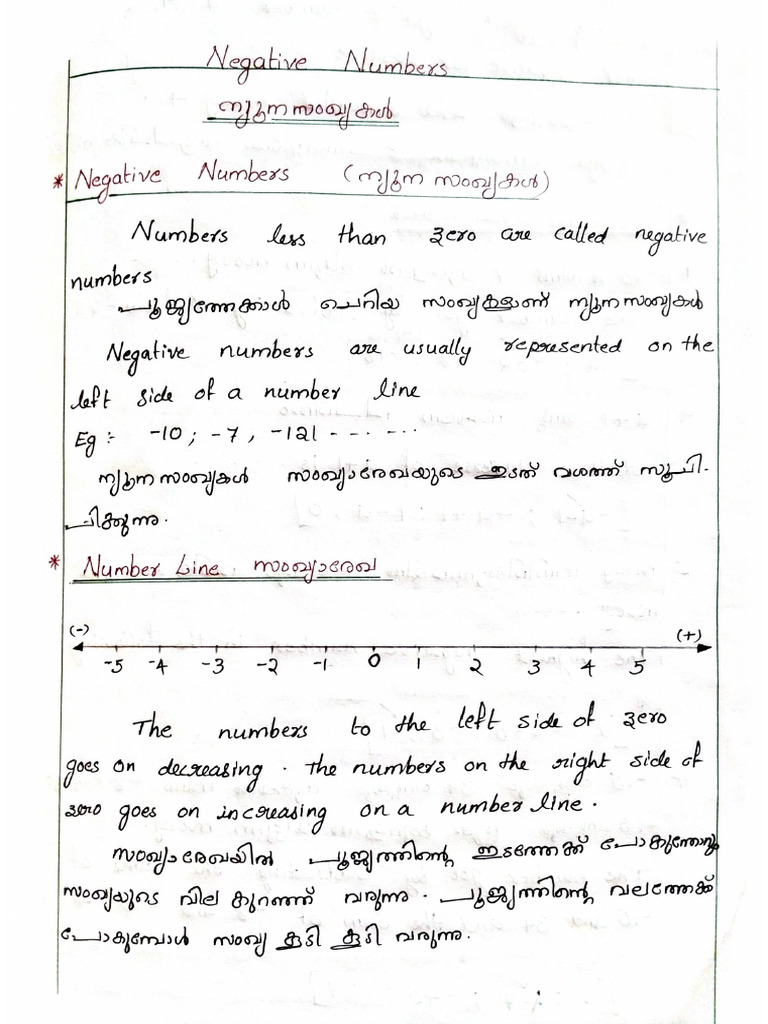 Negative Numbers
ന്യൂനസംഖ്യകൾ
* Negative Numbers (ന്യൂന സംഖ്യകൾ)
Numbers less than zero are called negative
numbers
പൂജ്യത്തേക്കാൾ ചെറിയ സംഖ്യകളാണ് ന്യൂനസംഖ്യകൾ
Negative numbers are usually represented on the
left side of a number line
Eg :- -10 ; -7 , -121 - - - - - -
ന്യൂനസംഖ്യകൾ സംഖ്യാരേഖയുടെ ഇടത് വശത്ത് സൂചി-
പ്പിക്കുന്നു.
* Number Line സംഖ്യാരേഖ
(-) (+)
-5 -4 -3 -2 -1 0 1 2 3 4 5
The numbers to the left side of zero
goes on decreasing. The numbers on the right side of
zero goes on increasing on a number line.
സംഖ്യാരേഖയിൽ പൂജ്യത്തിന്റെ ഇടത്തേക്ക് പോകുന്തോറും
സംഖ്യയുടെ വില കുറഞ്ഞ് വരുന്നു. പൂജ്യത്തിന്റെ വലത്തേക്ക്
പോകുമ്പോൾ സംഖ്യ കൂടി കൂടി വരുന്നു.